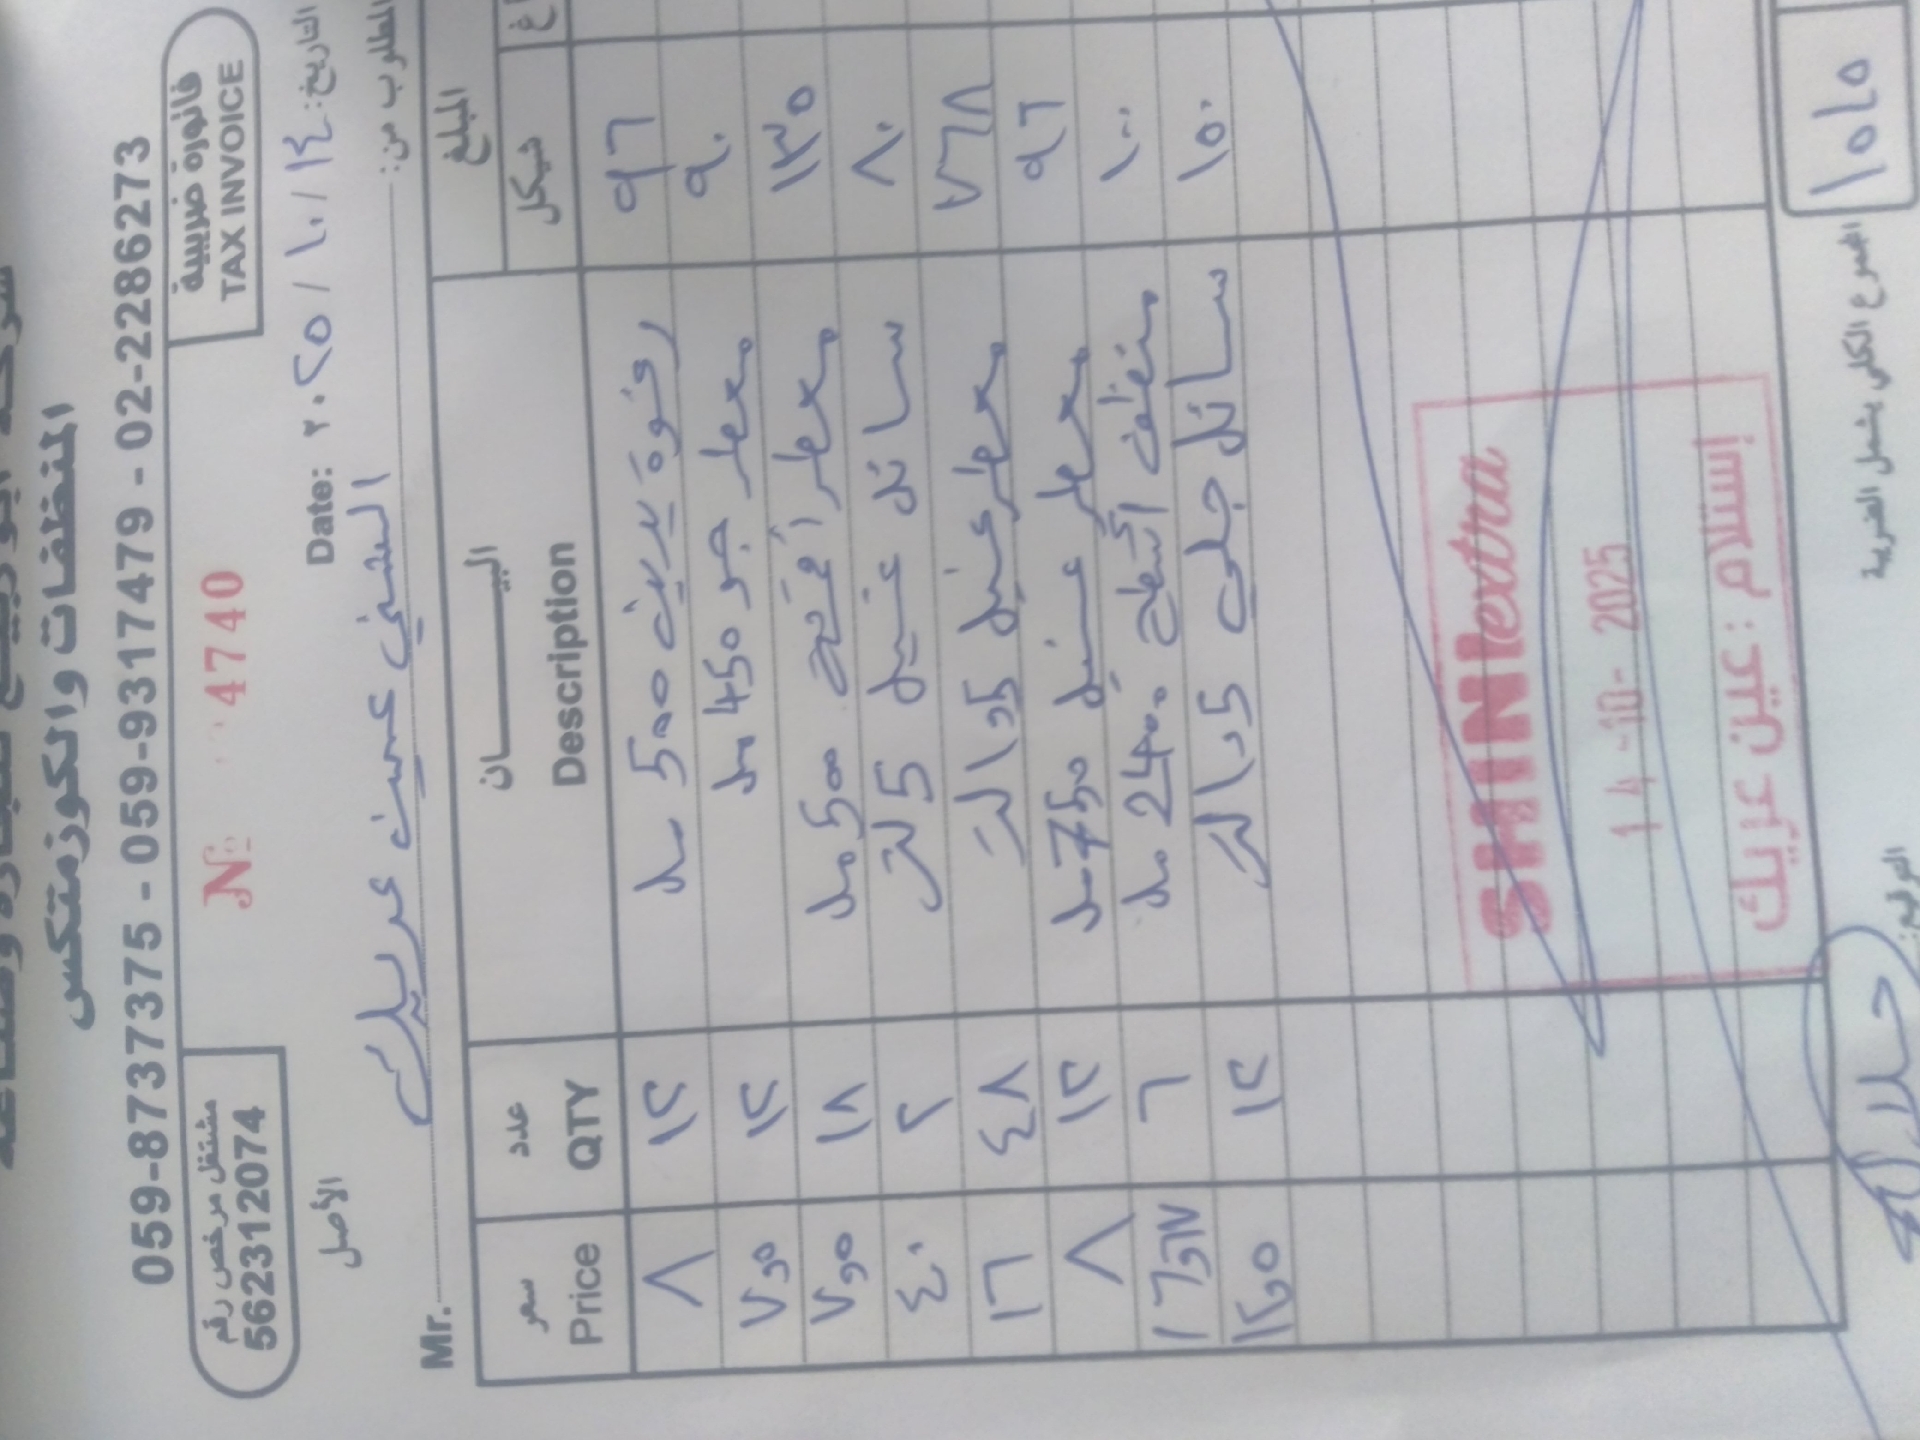 المنظفات والكوزمتكس
059-8737375 - 059-9317479 - 02-2286273
فاتورة ضريبية
TAX INVOICE
№ 4740
مشتغل مرخص رقم
562312074
التاريخ: ٢٠٢٥/١٠/١٤ Date:
الأصل
المطلوب من: السفي عين عريك Mr.
المبلغ البيـــــان عدد سعر
شيكل Description QTY Price
٩٦ 500 مل ١٢ ٨
٩٠ معطر جو 450 مل ١٢ ٧,٥
١٣٥ معطر 500 مل ١٨ ٧,٥
٨٠ سائل غسيل 5 لتر ٢ ٤٠
٧٦٨ معطر غسيل 5,1 لتر ٤٨ ١٦
٩٦ معطر غسيل 750 مل ١٢ ٨
١٠٠ منظف 2400 مل ٦ ١٦,٦٧
١٥٠ سائل جلي 5,1 لتر ١٢ ١٢,٥
SHINIextra
14-10-2025
إستلام : عين عريك
١٥١٥ المجموع الكلي يشمل الضريبة
التوقيع: